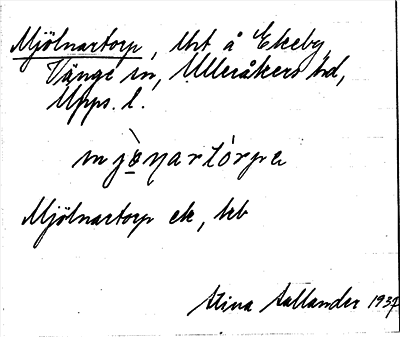 Mjölnartorp, lht å Ekeby,
Vänge sn, Ulleråkers hd,
Upps. l.
Mjölnartorp ek, kb
Stina Sallander 1937